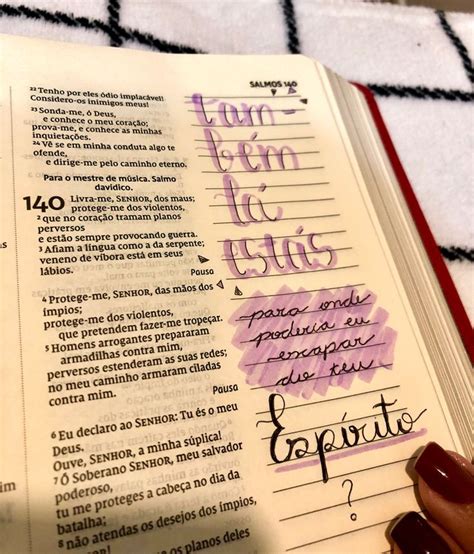 SALMOS 140
²² Tenho por eles ódio implacável!
Considero-os inimigos meus!
²³ Sonda-me, ó Deus,
e conhece o meu coração;
prova-me, e conhece as minhas
inquietações.
²⁴ Vê se em minha conduta algo te
ofende,
e dirige-me pelo caminho eterno.
Para o mestre de música. Salmo
davídico.
140 Livra-me, SENHOR, dos maus;
protege-me dos violentos,
² que no coração tramam planos
perversos
e estão sempre provocando guerra.
³ Afiam a língua como a da serpente;
veneno de víbora está em seus
lábios.
Pausa
⁴ Protege-me, SENHOR, das mãos dos
ímpios;
protege-me dos violentos,
que pretendem fazer-me tropeçar.
⁵ Homens arrogantes prepararam
armadilhas contra mim,
perversos estenderam as suas redes;
no meu caminho armaram ciladas
contra mim.
Pausa
⁶ Eu declaro ao SENHOR: Tu és o meu
Deus.
Ouve, SENHOR, a minha súplica!
⁷ Ó Soberano SENHOR, meu salvador
poderoso,
tu me proteges a cabeça no dia da
batalha;
⁸ não atendas os desejos dos ímpios,
os planos deles
tam-
bém
lá
estás
para onde
poderia eu
escapar
do teu
Espírito
?